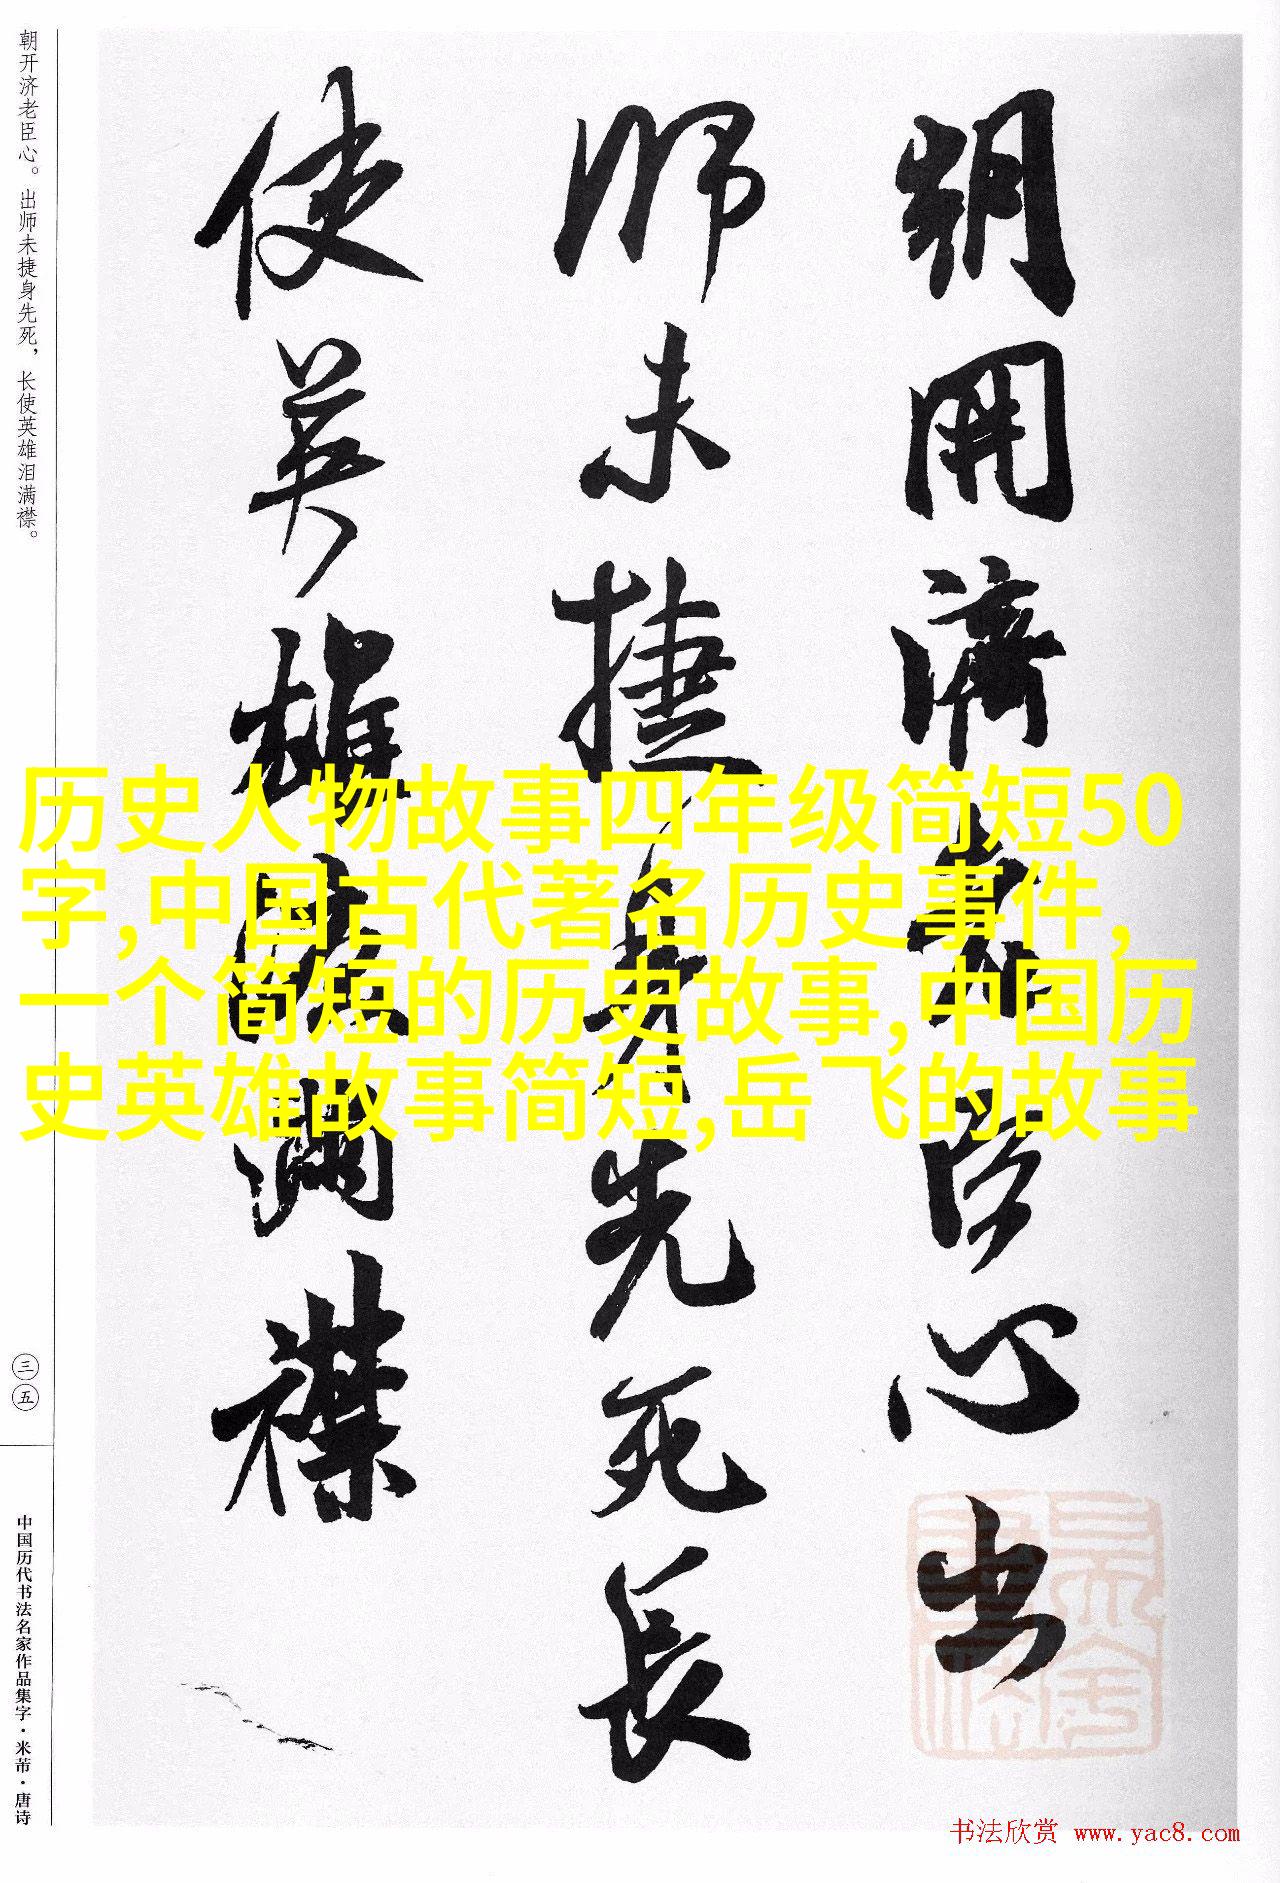 朝开济老臣心。出师未捷身先死，长使英雄泪满襟。
三五
中国历代书法名家作品集字·米芾·唐诗
朝開濟老臣心出
師未捷身先死長
使英雄淚滿襟
历史人物故事四年级简短50
字,中国古代著名历史事件,
一个简短的历史故事,中国历
史英雄故事简短,岳飞的故事
书法欣赏 www.yac8.com